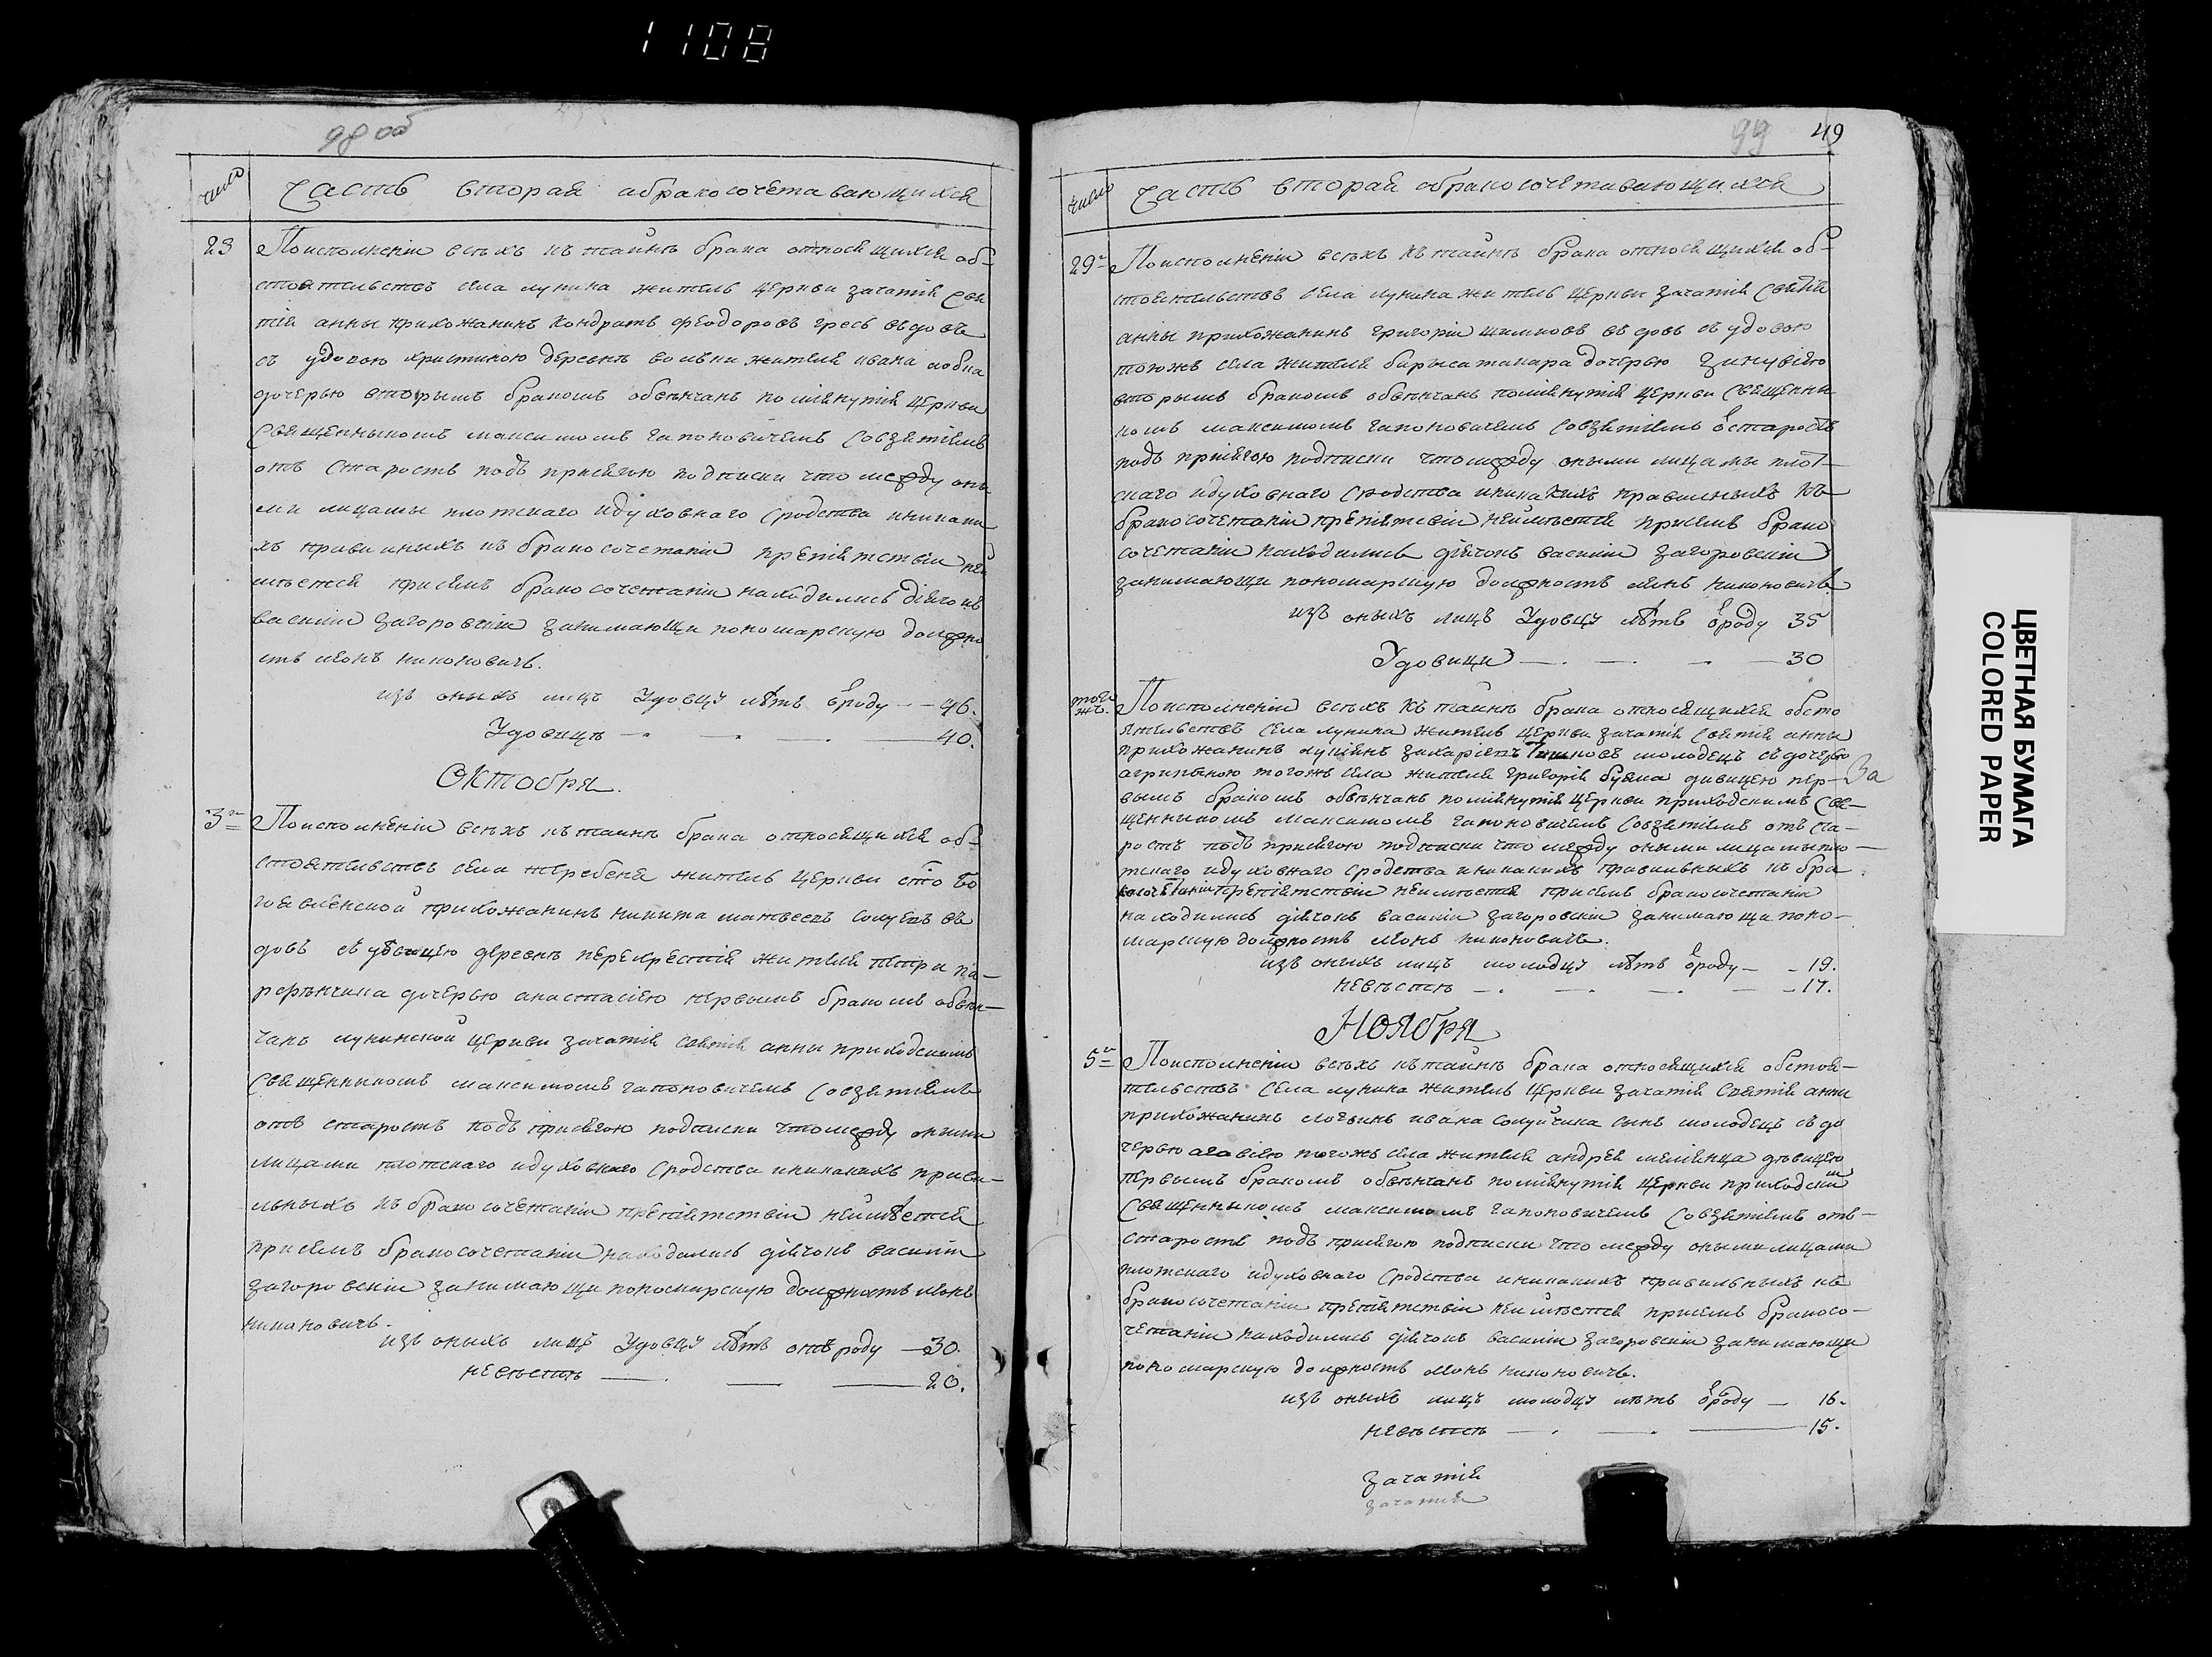 1108
98 об
число
Часть вторая абракосочетавающихся
23
Поисполненіи всѣхъ къ таинѣ брака относящихся об-
стоятельствъ села лунина житель церкви зачатія свя
тія анны прихожанинъ кондратъ феодоровъ гресь вѣдовъ
съ удовою христиною деревнѣ вольки жителя ивана
дочерью вторымъ бракомъ обвѣнчанъ помянутія церкви
священныкомъ максимомъ гапоновичемъ совзятіемъ
отъ старостъ подъ присягою подписки что между оны
ми лицамы плотскаго идуховнаго сродства иникаки
хъ правилныхъ къ бракосочетаніи препятствіи неи
мѣется присемъ бракосочетаніи находились дьячокъ
василіи загоровскіи занимающи пономарскую должно
сть леонъ никоновичъ.
изъ оныхъ лицъ Удовцу лѣтъ ѿроду — 46.
Удовицѣ — 40.
Октобря
3го
Поисполненіи всѣхъ къ таинѣ брака относящихся об-
стоятельствъ села жеребеня житель церкви сто бо
гоявленской прихожанинъ никита матвеевъ вѣ
довъ съ дѣвицею деревнѣ перехрестія жителя петра па-
рфѣнчика дочерью анастасіею первымъ бракомъ обвѣн-
чанъ лунинской церкви зачатія святія анны приходскимъ
священныкомъ максимомъ гапоновичемъ совзятіемъ
отъ старостъ подъ присягою подписки что между оными
лицами плотскаго идуховнаго сродства иникакихъ прави-
льныхъ къ бракосочетаніи препятствіи неимѣется
присемъ бракосочетаніи находились дьячокъ василіи
загоровскіи занимающи пономарскую должность леонъ
никоновичъ.
изъ оныхъ лицъ Удовцу лѣтъ отъ роду — 30.
невѣстѣ — 20.
99
49
число
Часть вторая обракосочетавающихся
29г
Поисполненіи всѣхъ къ таинѣ брака относящихся об-
стоятельствъ села лунина житель церкви зачатія святія
анны прихожанинъ григоріи вѣдовъ съ удовою
тогожъ села жителя дочерью
вторымъ бракомъ обвѣнчанъ помянутія церкви священны
комъ максимомъ гапоновичемъ совзятіемъ ѿ старостъ
подъ присягою подписки что между оными лицамы плот-
скаго идуховнаго сродства иникакихъ правилныхъ къ
бракосочетаніи препятсвіи неимѣется присемъ брако
сочетаніи находились дьячокъ василіи загоровскіи
занимающи пономарскую должность леонъ никоновичъ
изъ оныхъ лицъ Удовцу лѣтъ ѿроду 35
Удовици — 30
тогожъ.
Поисполненіи всѣхъ къ таинѣ брака относящихся обсто
ятельствъ села лунина житель церкви зачатія святія анны
прихожанинъ лукіянъ захаріевъ молодецъ съ дочерью
агрипиною тогожъ села жителя григорія дивицею пер-
вымъ бракомъ обвѣнчанъ помянутія церкви приходскимъ свя-
щенникомъ максимомъ гапоновичемъ совзятіемъ отъ ста-
ростъ подъ присягою подписки что между оными лицамы пло-
тскаго идуховнаго сродства иникакихъ правильныхъ къ бра
косочетаніи препятствіи неимѣется присемъ бракосочетаніи
находились дьячокъ василіи загоровскіи занимающи поно-
марскую должность леонъ никоновичъ.
изъ оныхъ лицъ молодцу лѣтъ ѿроду — 19.
невѣстѣ — 17.
Ноября
5го
Поисполненіи всѣхъ къ таинѣ брака относящихся обстоя-
тельствъ села лунина житель церкви зачатія святія анни
прихожанинъ логвинъ ивана сынъ молодецъ съ до
черью агавіею тогожъ села жителя андрея дѣвицею
первымъ бракомъ обвѣнчанъ помянутія церкви приходским
священныкомъ максимомъ гапоновичемъ совзятіемъ отъ-
старостъ подъ присягою подписки что между оными лицами
плотскаго идуховнаго сродства иникакихъ правильныхъ къ
бракосочетаніи препятствіи неимѣется присемъ бракосо-
четаніи находились дьячокъ василіи загоровскіи занимающи
пономарскую должность леонъ никоновичъ.
изъ оныхъ лицъ молодцу лѣтъ ѿроду — 16.
невѣстѣ — 15.
зачатія
зачатія
ЦВЕТНАЯ БУМАГА
COLORED PAPER